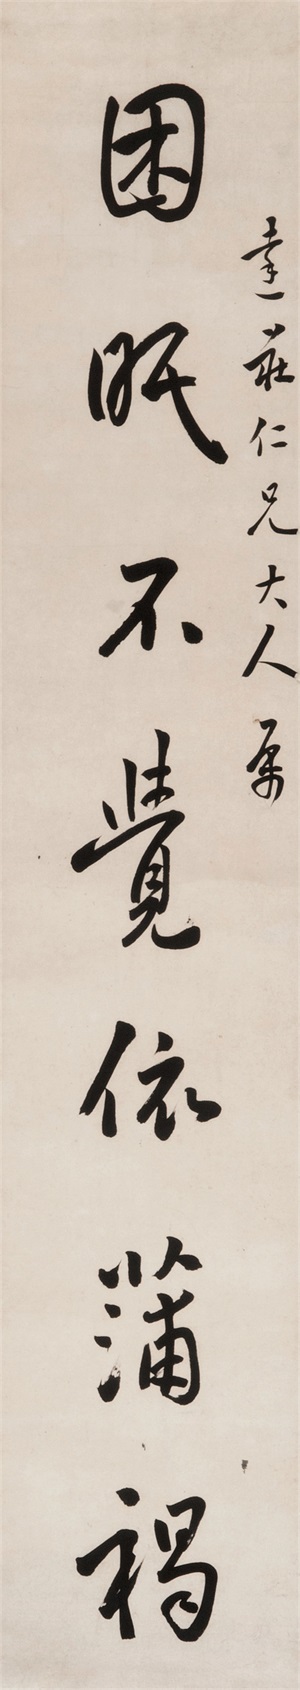 達莊仁兄大人属
困眠不覺依蒲褐